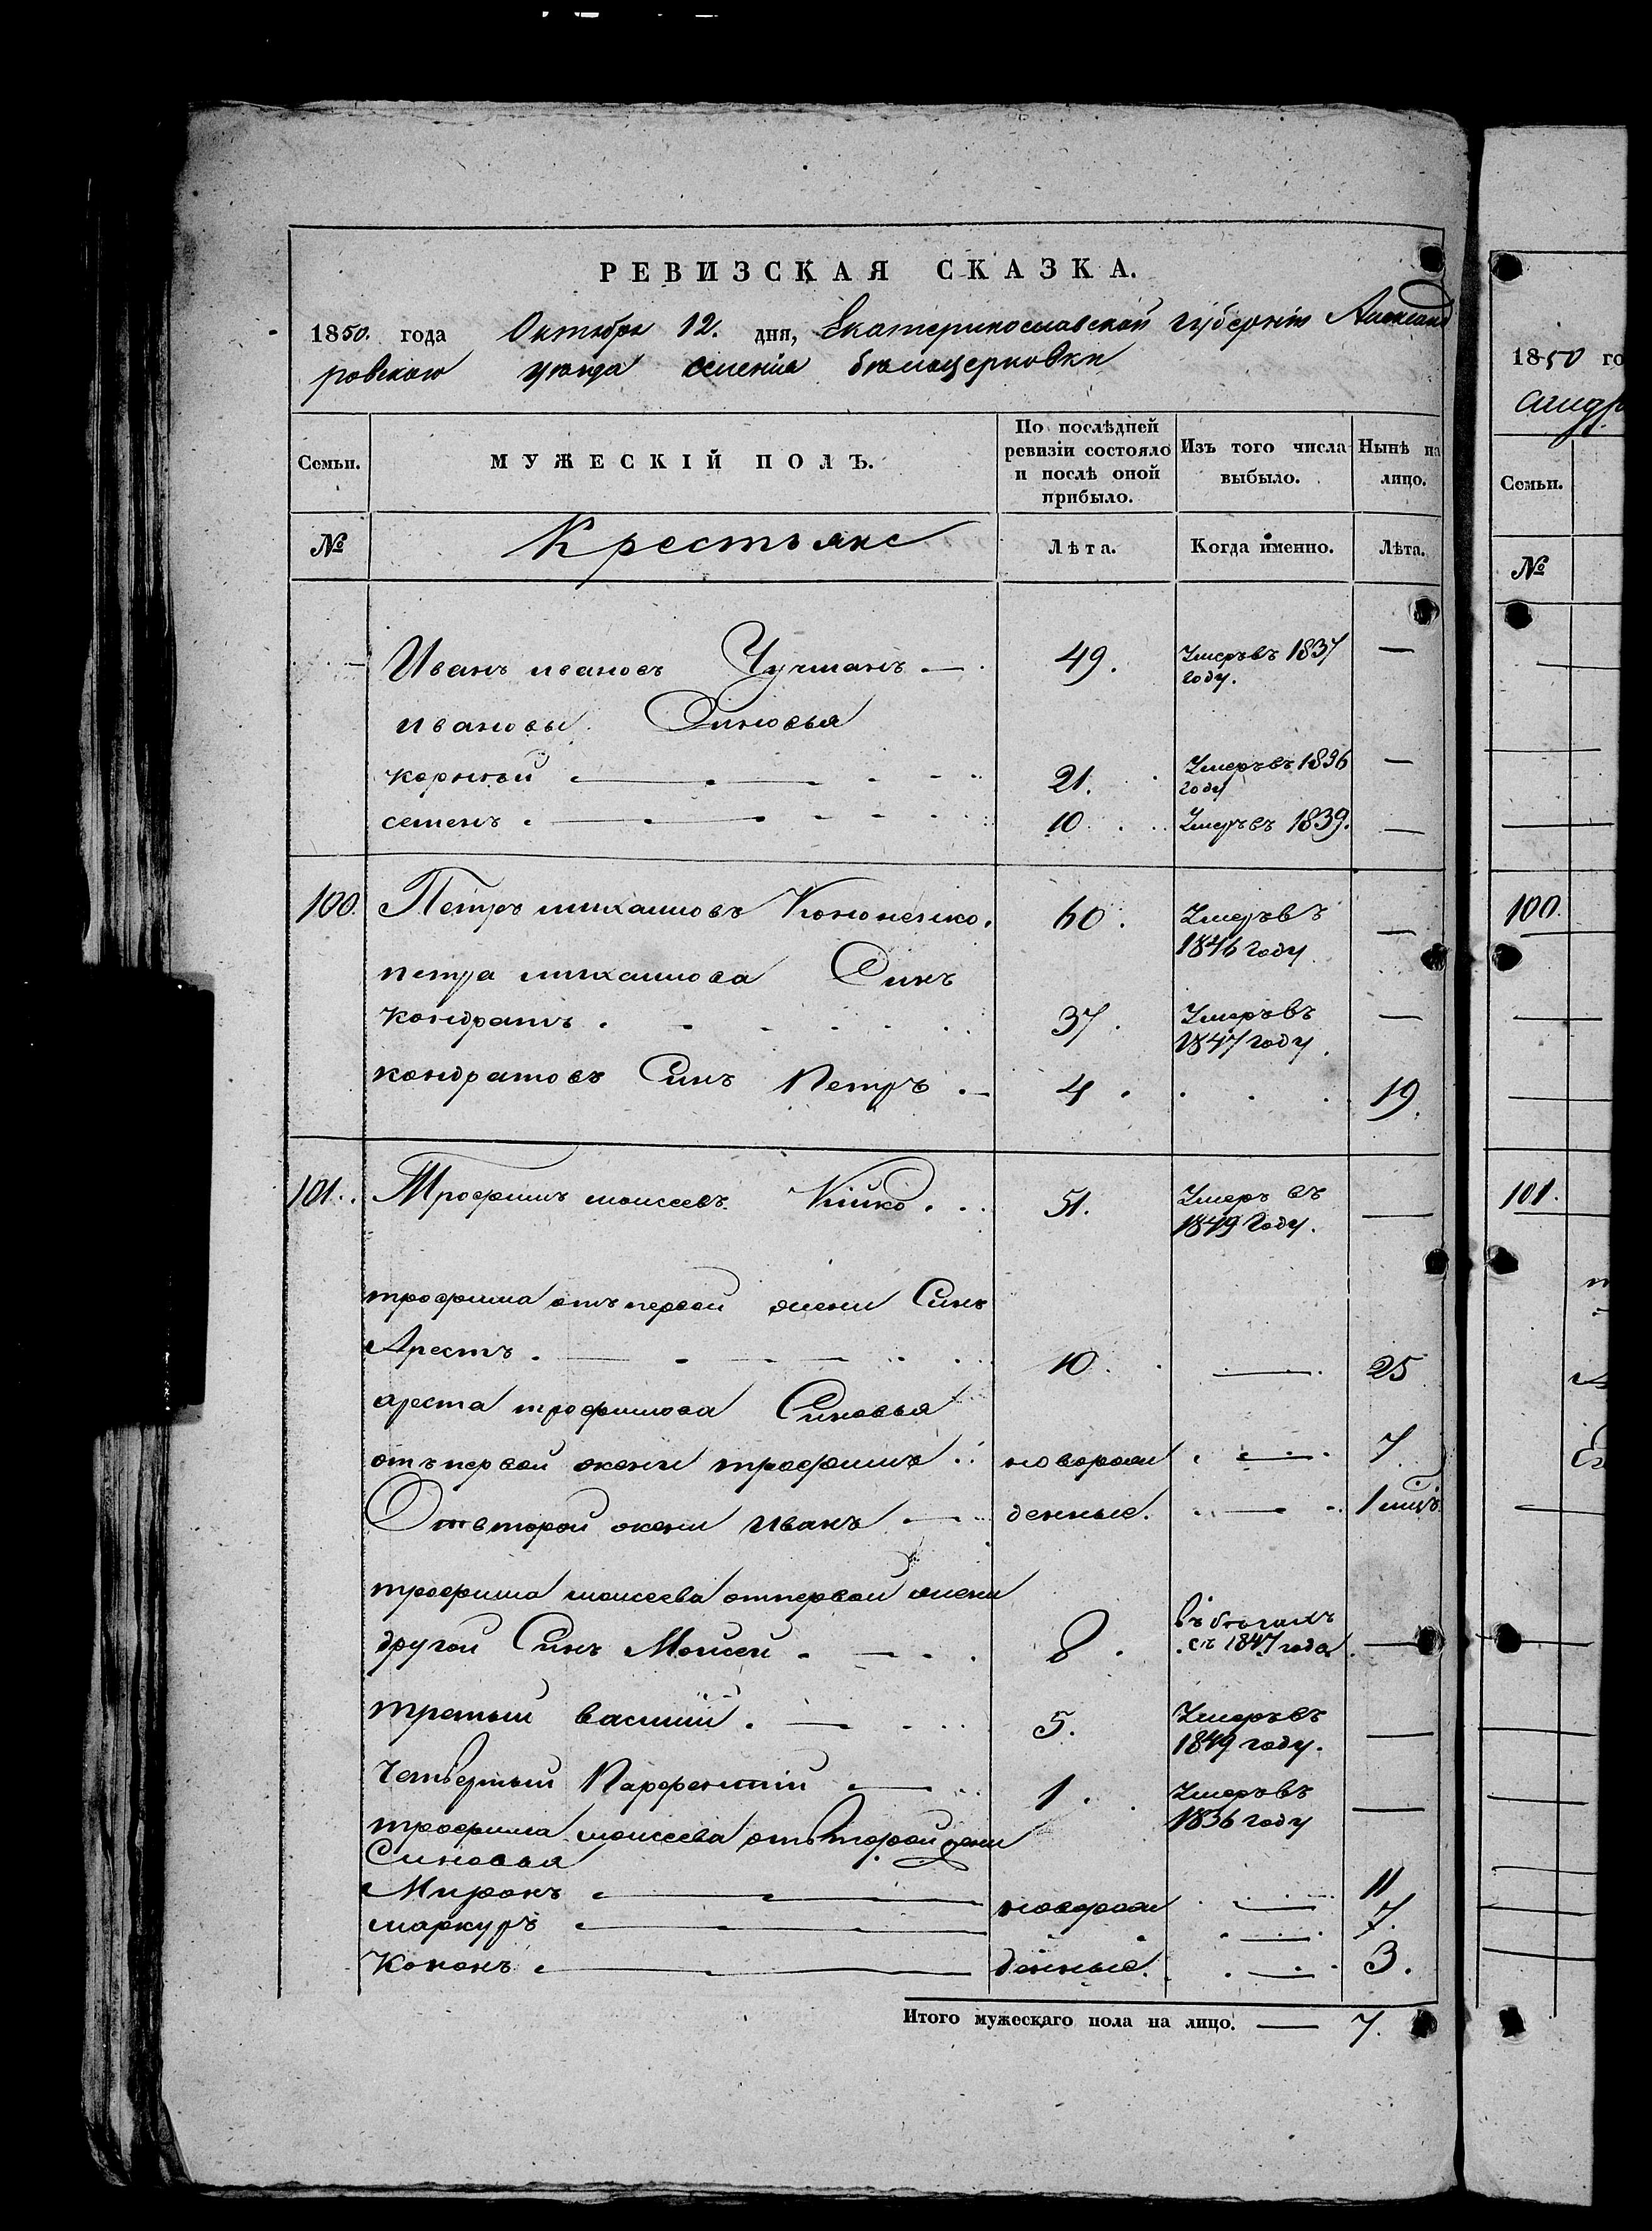 РЕВИЗСКАЯ СКАЗКА.
1850. года Октября 12. дня, Екатеринославской губернiи Александ
ровскаго уѣзда селенiя бѣлоцерковки
Семьи.
МУЖЕСКІЙ ПОЛЪ.
По послѣдней ревизіи состояло и послѣ оной прибыло.
Изъ того числа выбыло.
Нынѣ на лицо.
№
Крестьяне
Лѣта.
Когда именно.
Лѣта.
Иванъ ивановъ Чучманъ — 49. Умеръ въ 1837 году. —
ивановы Синовья
корнѣй 21. Умеръ въ 1836 году —
семенъ 10 Умеръ въ 1839. —
100. Петръ михаиловъ Кононенко. 60. Умеръ въ 1846 году —
петра михаилова Синъ
кондратъ 37. Умеръ въ 1847 году. —
кондратовъ Синъ Петръ 4. 19.
101. Трофимъ моисеевъ Кийко. 51. Умеръ въ 1849 году. —
трофима отъ первой жени Синъ
Арестъ 10. — 25
ареста трофимова Синовья
отъ первой жени трофимъ новорож — 7
От второй жени иванъ — денные. — 1 мцъ
трофима моисеева от первой жени
другой Синъ Моисей 8. въ бѣгахъ съ 1847 года —
третый василiй 5. Умеръ въ 1849 году. —
Четвертый Парфентiй 1. Умеръ въ 1836 году —
трофима моисеева от второй жени
Синовья
Миронъ новорож — 11
маркуръ — 7.
Кононъ денные. — 3.
Итого мужескаго пола на лицо. — 7.
1850 го
сандр
Семьи.
№
100.
101.